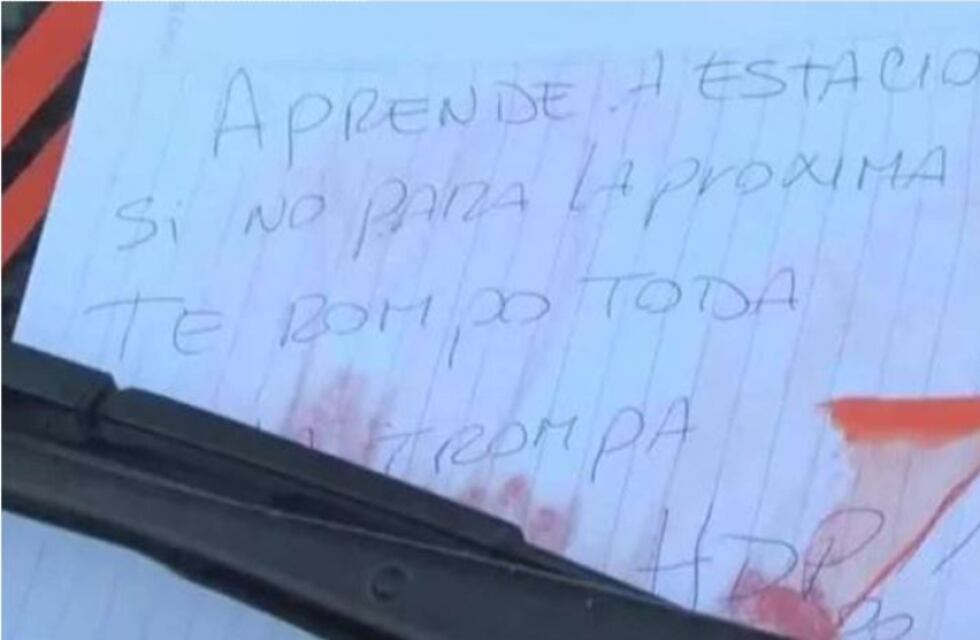 APRENDE A ESTACIO
Si NO PARA LA PROXIMA
TE ROMPO TODA
LA TROMPA
HDP